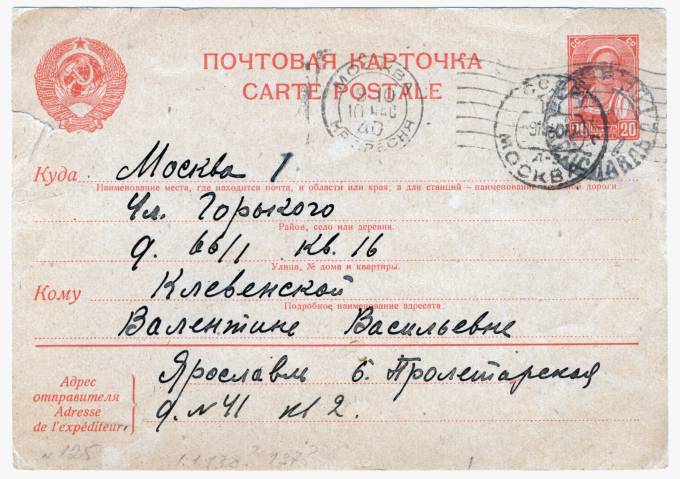 ПОЧТОВАЯ КАРТОЧКА
CARTE POSTALE
МОСКВА
10 ЧАС
40
20
МОСКВА
Куда Москва 1
Наименование места, где находится почта, и области или края, а для станций – наименование дороги
Ул. Горького
Район, село или деревня.
д. 66/1 кв. 16
Улица, № дома и квартиры.
Кому Клевенской
Подробное наименование адресата
Валентине Васильевне
Адрес отправителя Ярославль б. Пролетарская
Adresse de l'expéditeur д. N 41 кв 2.
N 125